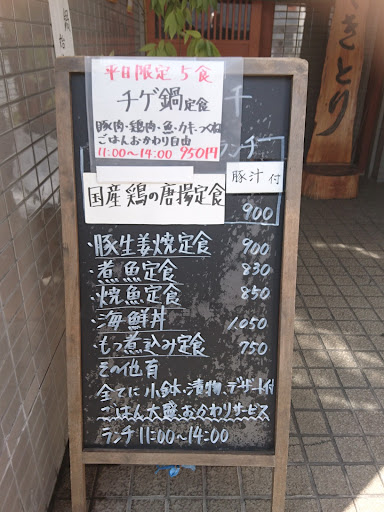 平日限定 5食
チゲ鍋定食
豚肉・鶏肉・魚・カキ・つくね
ごはんおかわり自由
11:00〜14:00 950円
チ
ランチ
豚汁付
国産 鶏の唐揚定食
900
・豚生姜焼定食 900
・煮魚定食 830
・焼魚定食 850
・海鮮丼 1,050
・もつ煮込み定食 750
その他有
全てに 小鉢・漬物・デザート付
ごはん大盛おかわりサービス
ランチ 11:00〜14:00
きとり